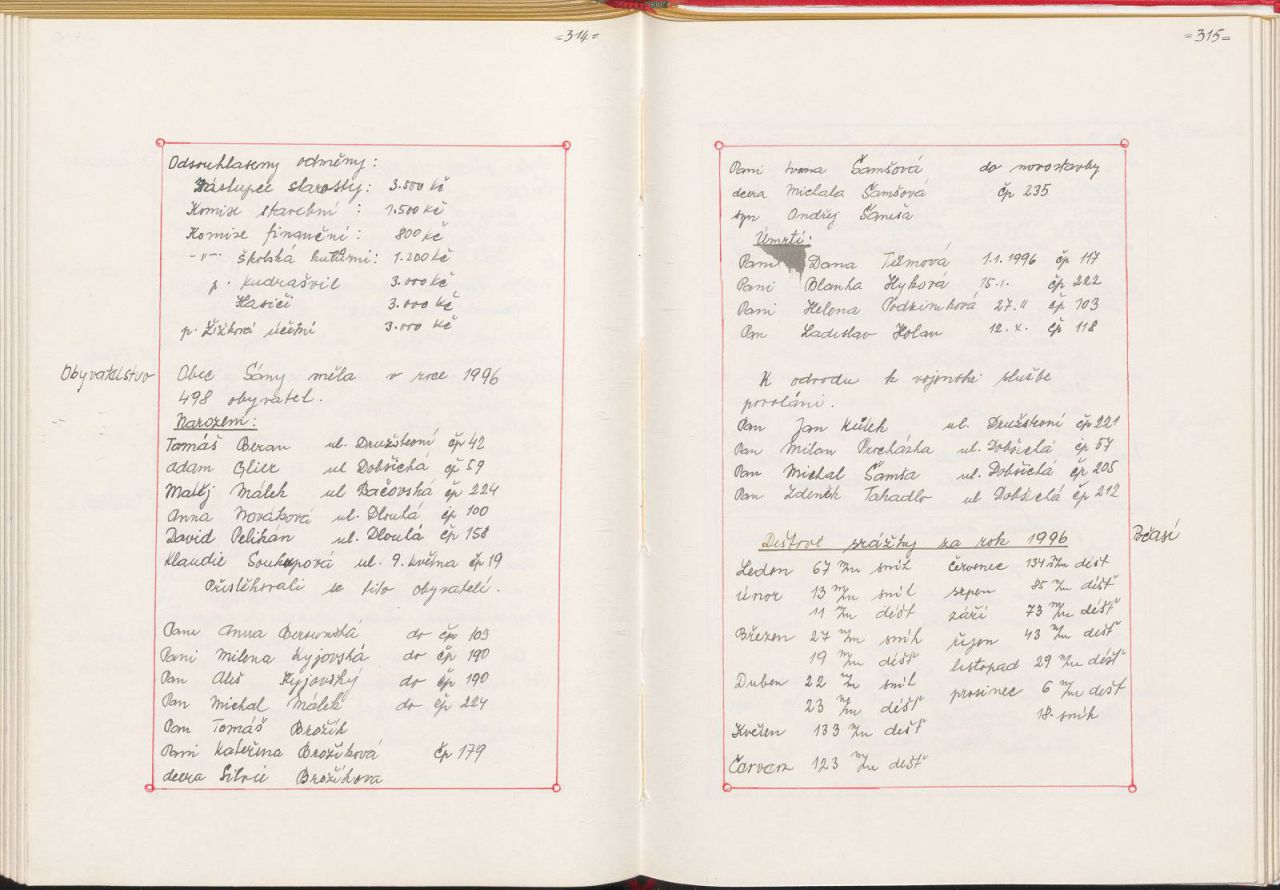 =314=
Odsouhlaseny odměny:
Zástupce starosty: 3.500 Kč
Komise stavební : 1.500 Kč
Komise finanční : 800 Kč
-"- školská kulturní: 1.200 Kč
p. Kudrašvil 3.000 Kč
Hasiči 3.000 Kč
p. Žižková účetní 3.000 Kč
Obyvatelstvo
Obec Sány měla v roce 1996
498 obyvatel.
Narození:
Tomáš Beran ul. Družstevní čp 42
Adam Glier ul Dobšická čp 59
Matěj Málek ul Bačovská čp 224
Anna Nováková ul. Dlouhá čp 100
David Pelikán ul. Dlouhá čp 158
Klaudie Soukupová ul. 9. května čp 19
Přistěhovali se tito obyvatelé.
Paní Anna do čp 103
Paní Milena Kyjovská do čp 190
Pan Aleš Kyjovský do čp 190
Pan Michal Málek do čp 224
Pan Tomáš Brožík
Paní Kateřina Brožíková čp 179
dcera Silvie Brožíkova
=315=
Paní Ivana Šamšová do novostavby
dcera Michala Šamšová čp 235
syn Ondřej Šamša
Úmrtí:
Paní Dana 1.1.1996 čp 117
Paní Blanka Hyková 15.1. čp 222
Paní Helena Podzimková 27.11 čp 103
Pan Ladislav Holan 12.X. čp 118
K odvodu k vojenské službe
povoláni.
Pan Jan ul. Družstevní čp 221
Pan Milan Procházka ul. Dobšická čp 57
Pan Michal Šamša ul. Dobšická čp 205
Pan Zdeněk Tahadlo ul Dobšická čp 212
Počasí
Dešťové srážky za rok 1996
Leden 67 m/m sníh červenec 134 m/m déšť
únor 13 m/m sníh srpen 85 m/m déšť
11 m/m déšť září 73 m/m déšť
Březen 27 m/m sníh říjen 43 m/m déšť
19 m/m déšť listopad 29 m/m déšť
Duben 22 m/m sníh prosinec 6 m/m déšť
23 m/m déšť 18. sníh
Květen 133 m/m déšť
Červen 123 m/m déšť